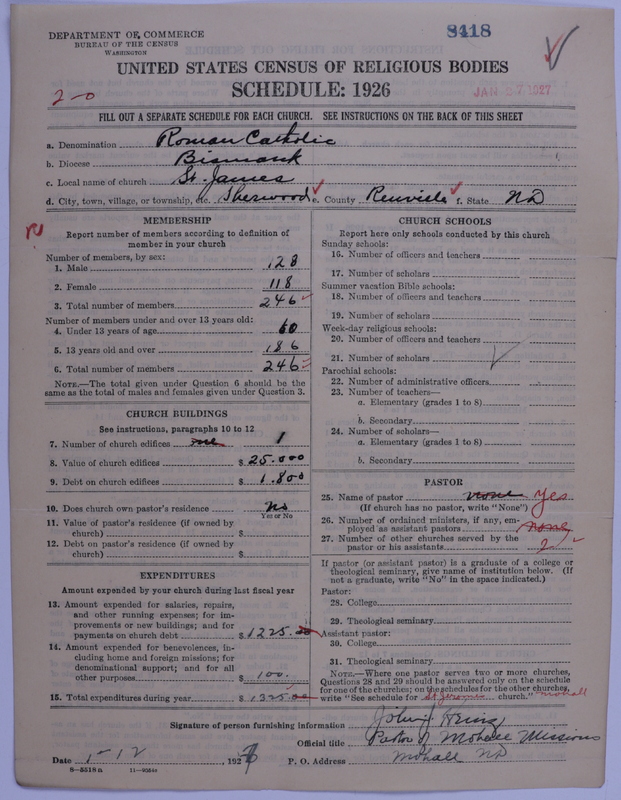 DEPARTMENT OF COMMERCE
BUREAU OF THE CENSUS
WASHINGTON
8418
UNITED STATES CENSUS OF RELIGIOUS BODIES
SCHEDULE: 1926
2-0
JAN 27 1927
FILL OUT A SEPARATE SCHEDULE FOR EACH CHURCH. SEE INSTRUCTIONS ON THE BACK OF THIS SHEET
a. Denomination Roman Catholic
b. Diocese Bismark
c. Local name of church St. James
d. City, town, village, or township, etc. Sherwood e. County Renville f. State ND
MEMBERSHIP
Report number of members according to definition of
member in your church
Number of members, by sex:
1. Male 128
2. Female 118
3. Total number of members 246
Number of members under and over 13 years old:
4. Under 13 years of age 60
5. 13 years old and over 186
6. Total number of members 246
NOTE.—The total given under Question 6 should be the
same as the total of males and females given under Question 3.
CHURCH BUILDINGS
See instructions, paragraphs 10 to 12
7. Number of church edifices one 1
8. Value of church edifices $ 25.000
9. Debt on church edifices $ 1.800
10. Does church own pastor's residence no
Yes or No
11. Value of pastor's residence (if owned by
church) $
12. Debt on pastor's residence (if owned by
church) $
EXPENDITURES
Amount expended by your church during last fiscal year
13. Amount expended for salaries, repairs,
and other running expenses; for im-
provements or new buildings; and for
payments on church debt $ 1225.00
14. Amount expended for benevolences, in-
cluding home and foreign missions; for
denominational support; and for all
other purposes $ 100.
15. Total expenditures during year $ 1325.00
CHURCH SCHOOLS
Report here only schools conducted by this church
Sunday schools:
16. Number of officers and teachers
17. Number of scholars
Summer vacation Bible schools:
18. Number of officers and teachers
19. Number of scholars
Week-day religious schools:
20. Number of officers and teachers
21. Number of scholars
Parochial schools:
22. Number of administrative officers
23. Number of teachers—
a. Elementary (grades 1 to 8)
b. Secondary
24. Number of scholars—
a. Elementary (grades 1 to 8)
b. Secondary
PASTOR
25. Name of pastor none Yes
(If church has no pastor, write "None")
26. Number of ordained ministers, if any, em-
ployed as assistant pastors none
27. Number of other churches served by the
pastor or his assistants 2
If pastor (or assistant pastor) is a graduate of a college or
theological seminary, give name of institution below. (If
not a graduate, write "No" in the space indicated.)
Pastor:
28. College
29. Theological seminary
Assistant pastor:
30. College
31. Theological seminary
NOTE.—Where one pastor serves two or more churches,
Questions 28 and 29 should be answered only on the schedule
for one of the churches; on the schedules for the other churches,
write "See schedule for St Jeromes church." Mohall
Signature of person furnishing information John J Heinz
Official title Pastor of Mohall Missions
Date 1-12 1927 P. O. Address Mohall ND
8—5518 a